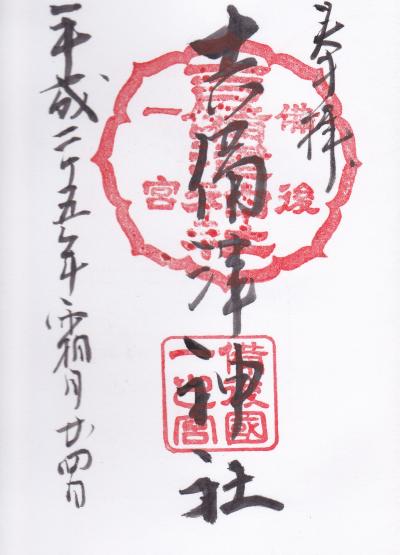 奉拝
備後
一宮
吉備津神社
備後國
一之宮
平成二十五年霜月廿四日